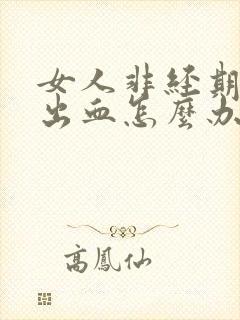 女人非经期
出血怎麽办
高鳳仙